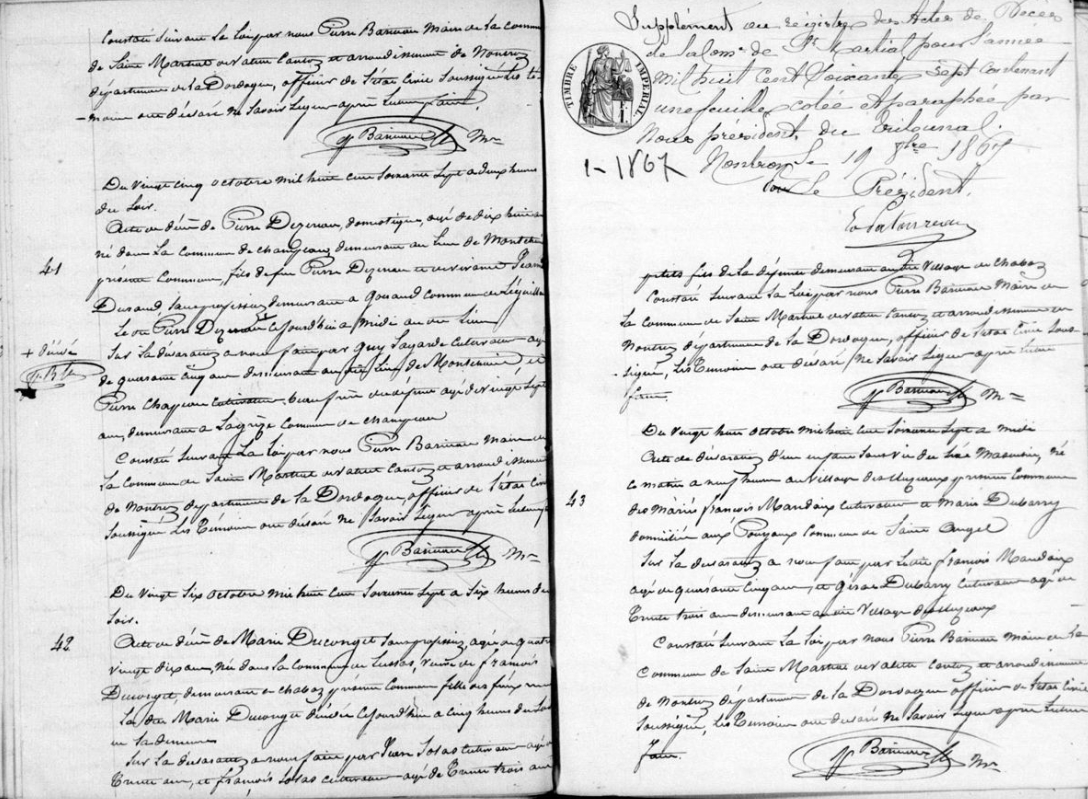 constaté suivant la loi par nous Pierre Barineau Maire de la commune
de Saint Martial de Valette canton et arrondissement de Nontron
département de la Dordogne, officier de l'état civil soussigné les té-
-moins ont déclaré ne savoir signer après lecture faite.
P Barineau Mre
Du vingt cinq octobre mil huit cent soixante sept à deux heures
du soir.
41
Acte de décès de Pierre domestique, âgé de dix huit ans
né dans la commune de demeurant au lieu de
présente commune, fils de feu Pierre et de vivante
Durand sans profession demeurant à commune de
Le dit Pierre + cejourd'hui à midi au dit lieu
+ décédé
P. B
Sur la déclaration à nous faite par Guy Lagarde cultivateur âgé
de quarante cinq ans demeurant au dit lieu de et
Pierre Chapeau cultivateur, beau frère du défunt âgé de vingt sept
ans, demeurant à commune de
Constaté suivant la loi par nous Pierre Barineau Maire de
la commune de Saint Martial de Valette canton et arrondissement
de Nontron département de la Dordogne, officier de l'état civil
soussigné les témoins ont déclaré ne savoir signer après lecture
P Barineau Mre
Du vingt six octobre mil huit cent soixante sept à six heures du
soir.
42
Acte de décès de Marie Ducongé sans profession, âgée de quatre
vingt dix ans née dans la commune de Lussas, veuve de François
demeurant à Chabaz présente commune fille de feux
La dite Marie décédée cejourd'hui à cinq heures du soir
en sa demeure
Sur la déclaration à nous faite par cultivateur âgé de
trente ans, et François cultivateur âgé de trente trois ans
Supplément au registre des Actes de Décès
de la Comne de St Martial pour l'année
mil huit cent soixante sept contenant
une feuille cotée et paraphée par
Nous président du tribunal.
TIMBRE IMPERIAL
1- 1867
Nontron le 19 8bre 1867
Le Président.
petits fils de la défunte demeurant au dit village de Chabaz
Constaté suivant la loi par nous Pierre Barineau Maire de
la commune de Saint Martial de Valette canton et arrondissement de
Nontron département de la Dordogne, officier de l'état civil sous-
-signé, les témoins ont déclaré ne savoir signer après lecture
faite.
P Barineau Mre
Du vingt huit octobre mil huit cent soixante sept à midi
43
Acte de déclaration d'un enfant sans vie du sexe masculin, né
ce matin à neuf heures au village des présente commune
des mariés François cultivateur et Marie Dubarry
domiciliés aux commune de Saint Angel
Sur la déclaration à nous faite par le dit François
âgé de quarante cinq ans, et Dubarry cultivateur âgé de
trente trois ans demeurant au dit village des
Constaté suivant la loi par nous Pierre Barineau Maire de la
commune de Saint Martial de Valette canton et arrondissement
de Nontron département de la Dordogne officier de l'état civil
soussigné, les témoins ont déclaré ne savoir signer après lecture
faite.
P Barineau Mre